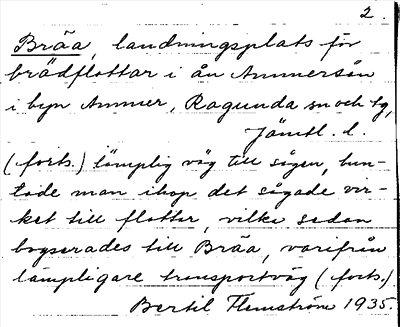 2.
Bräa, landningsplats för
brädflottar i ån Ammerån
i byn Ammer, Ragunda sn och tg,
Jämtl. l.
(forts.) lämplig väg till sågen, bun-
tade man ihop det sågade vir-
ket till flottar, vilka sedan
bogserades till Bräa, varifrån
lämpligare transportväg (forts.)
Bertil Flemström 1935